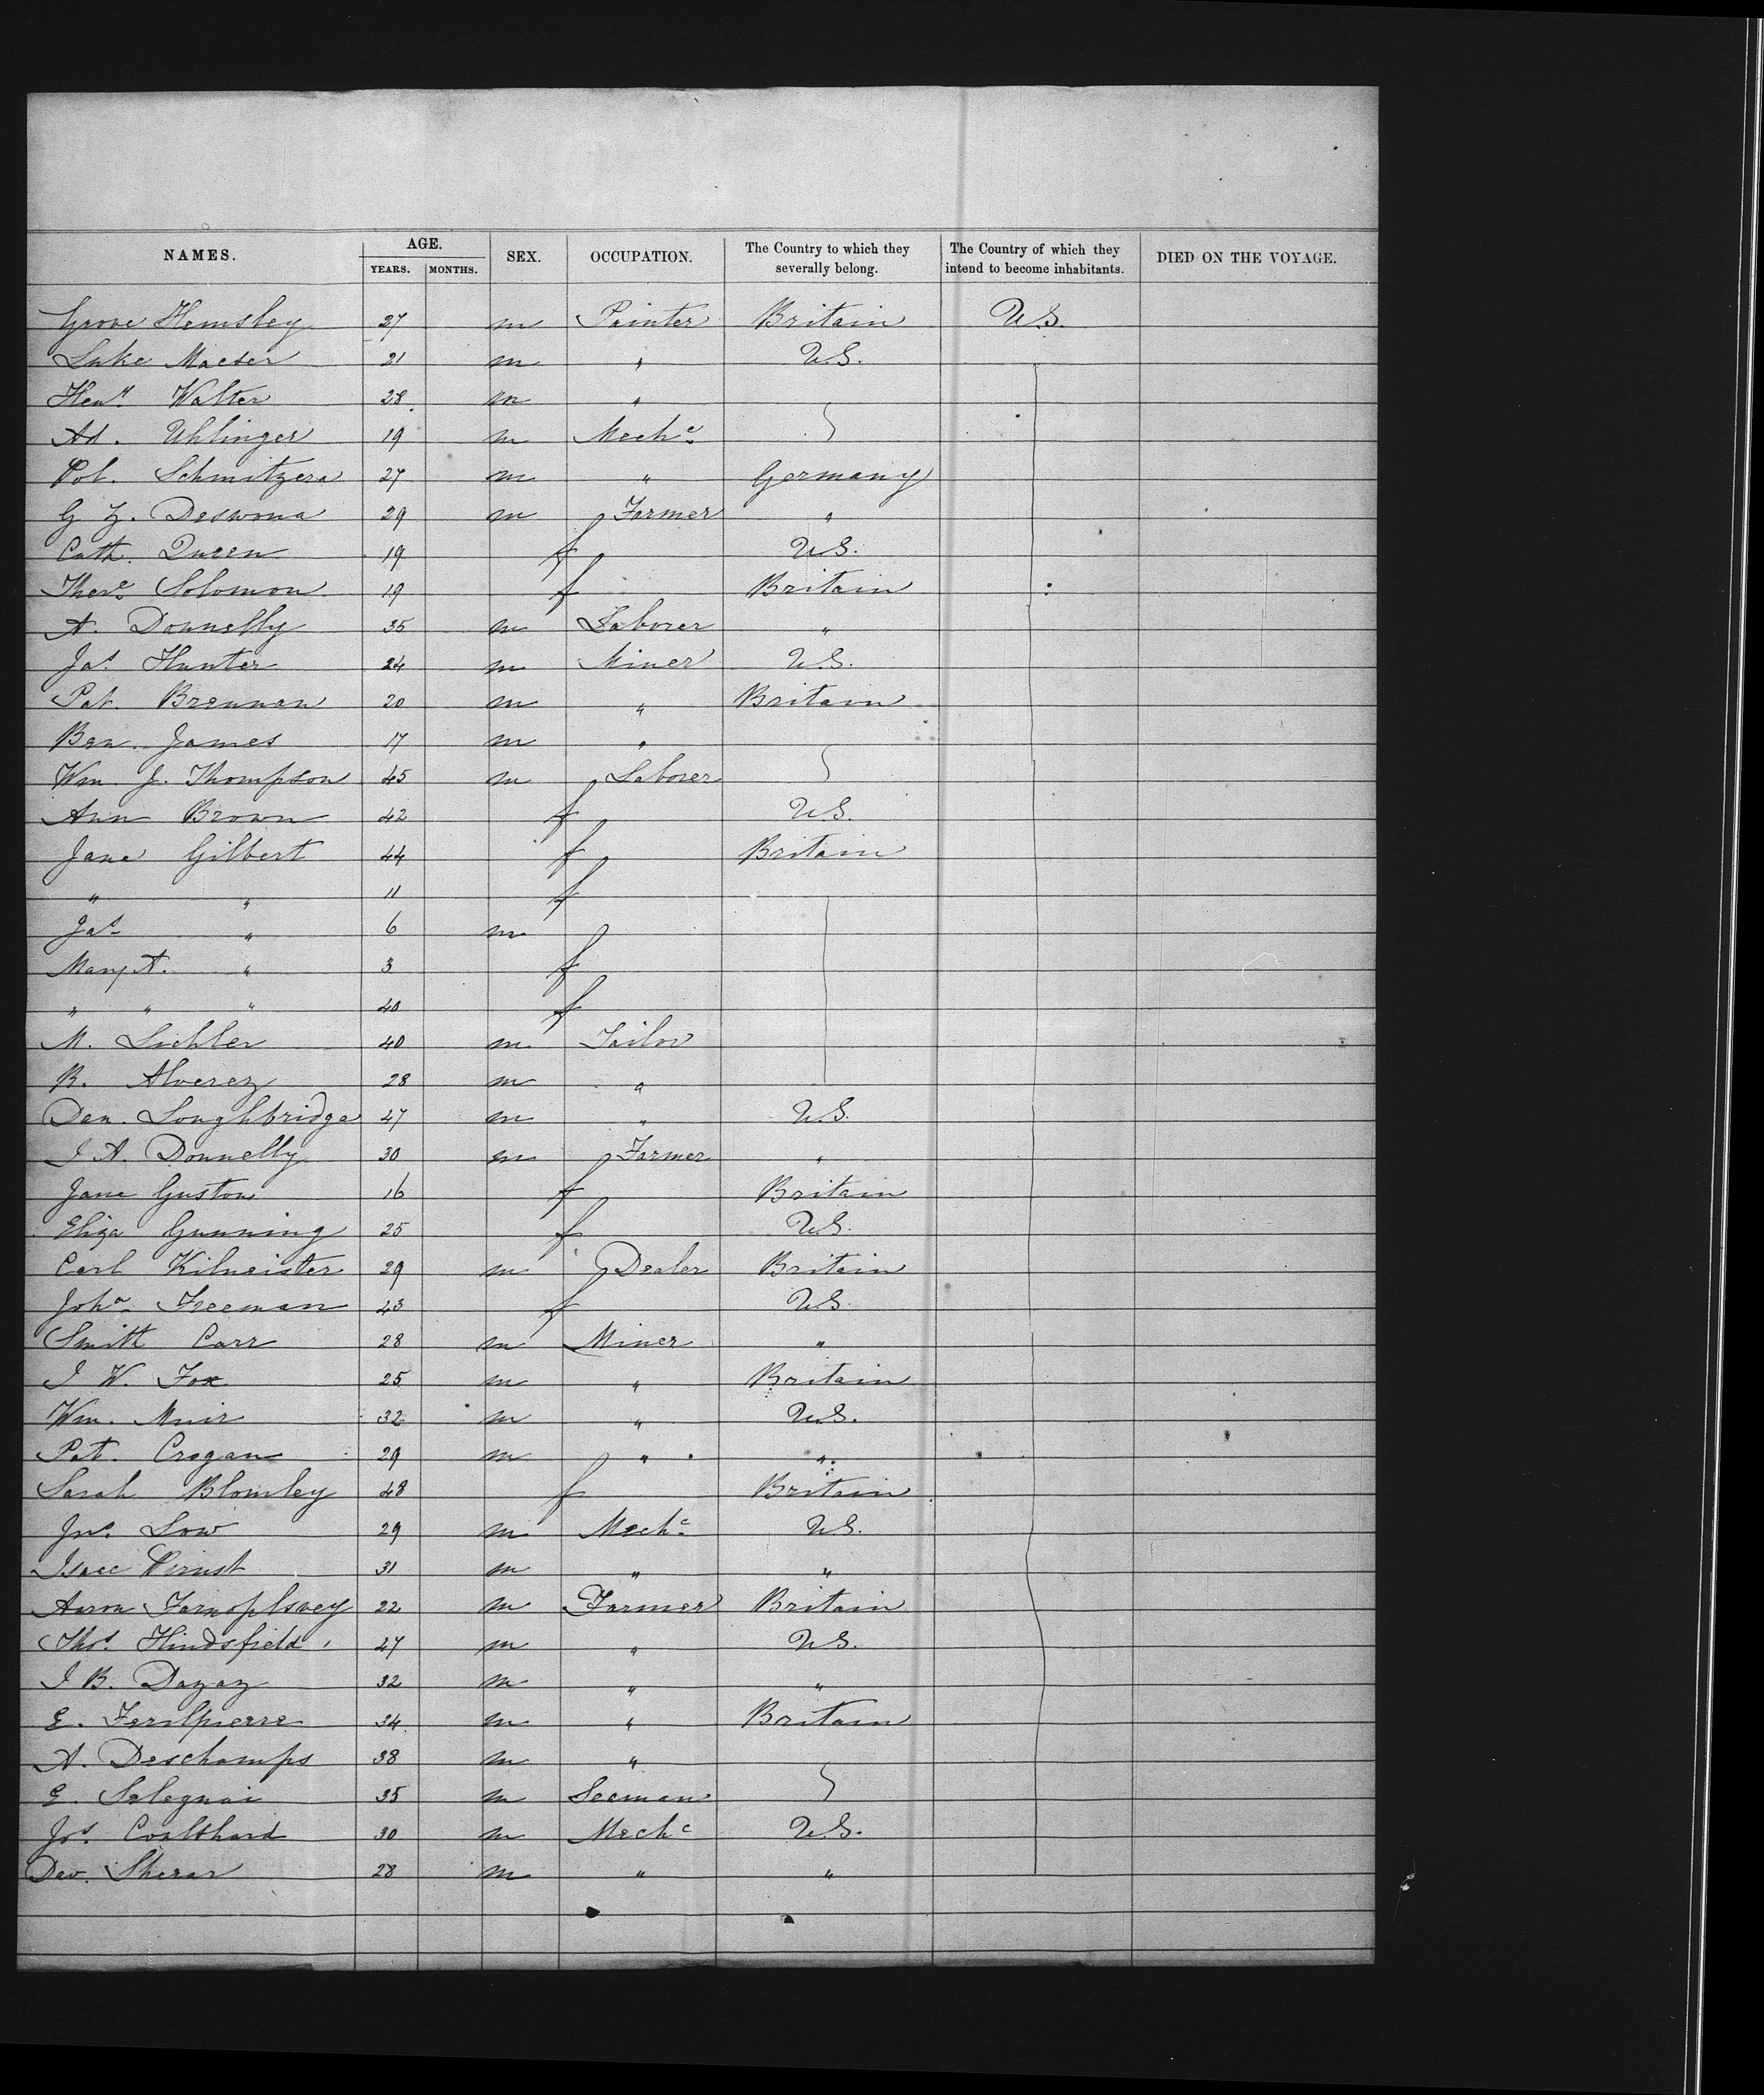 NAMES. AGE. YEARS. MONTHS. SEX. OCCUPATION. The Country to which they severally belong. The Country of which they intend to become inhabitants. DIED ON THE VOYAGE.
Grove Hemsley 27 m Painter Britain U.S.
Luke Maeser 21 m " U.S.
Heny. Walter 28 m "
Ad. Uhlinger 19 m Mechc
Pol. Schmitzera 27 m " Germany
G Z. Deswona 29 m Farmer "
Cath. Queen 19 f U.S.
There Solomon 19 f Britain
A. Donnelly 35 m Laborer "
Jas Hunter 24 m Miner U.S.
Pat. Brennan 20 m " Britain
Ben. James 17 m "
Wm. J. Thompson 45 m Laborer
Ann Brown 42 f U.S.
Jane Gilbert 44 f Britain
" " 11 f
Jas " 6 m
Mary A. " 3 f
" " " 40 f
M. Lichler 40 m Tailor
R. Alverez 28 m "
Dan. Loughbridge 47 m " U.S.
J A. Donnelly 30 m Farmer "
Jane Guston 16 f Britain
Eliza Gunning 25 f U.S.
Carl Kilmeister 29 m Dealer Britain
Joha Freeman 43 f U.S.
Smith Carr 28 m Miner "
J W. Fox 25 m " Britain
Wm. Muir 32 m " U.S.
Pat. Crogan 29 m " "
Sarah Blomley 48 f Britain
Jno. Low 29 m Mechc U.S.
Isaac 31 m " "
Aaron 22 m Farmer Britain
Thos. Hindsfield 27 m " U.S.
J B. Dazaz 32 m " "
E. 34 m " Britain
A. Deschamps 38 m "
E. 35 m Seeman
Jos. Coalthard 30 m Mechc U.S.
Dav. Sherar 28 m " "